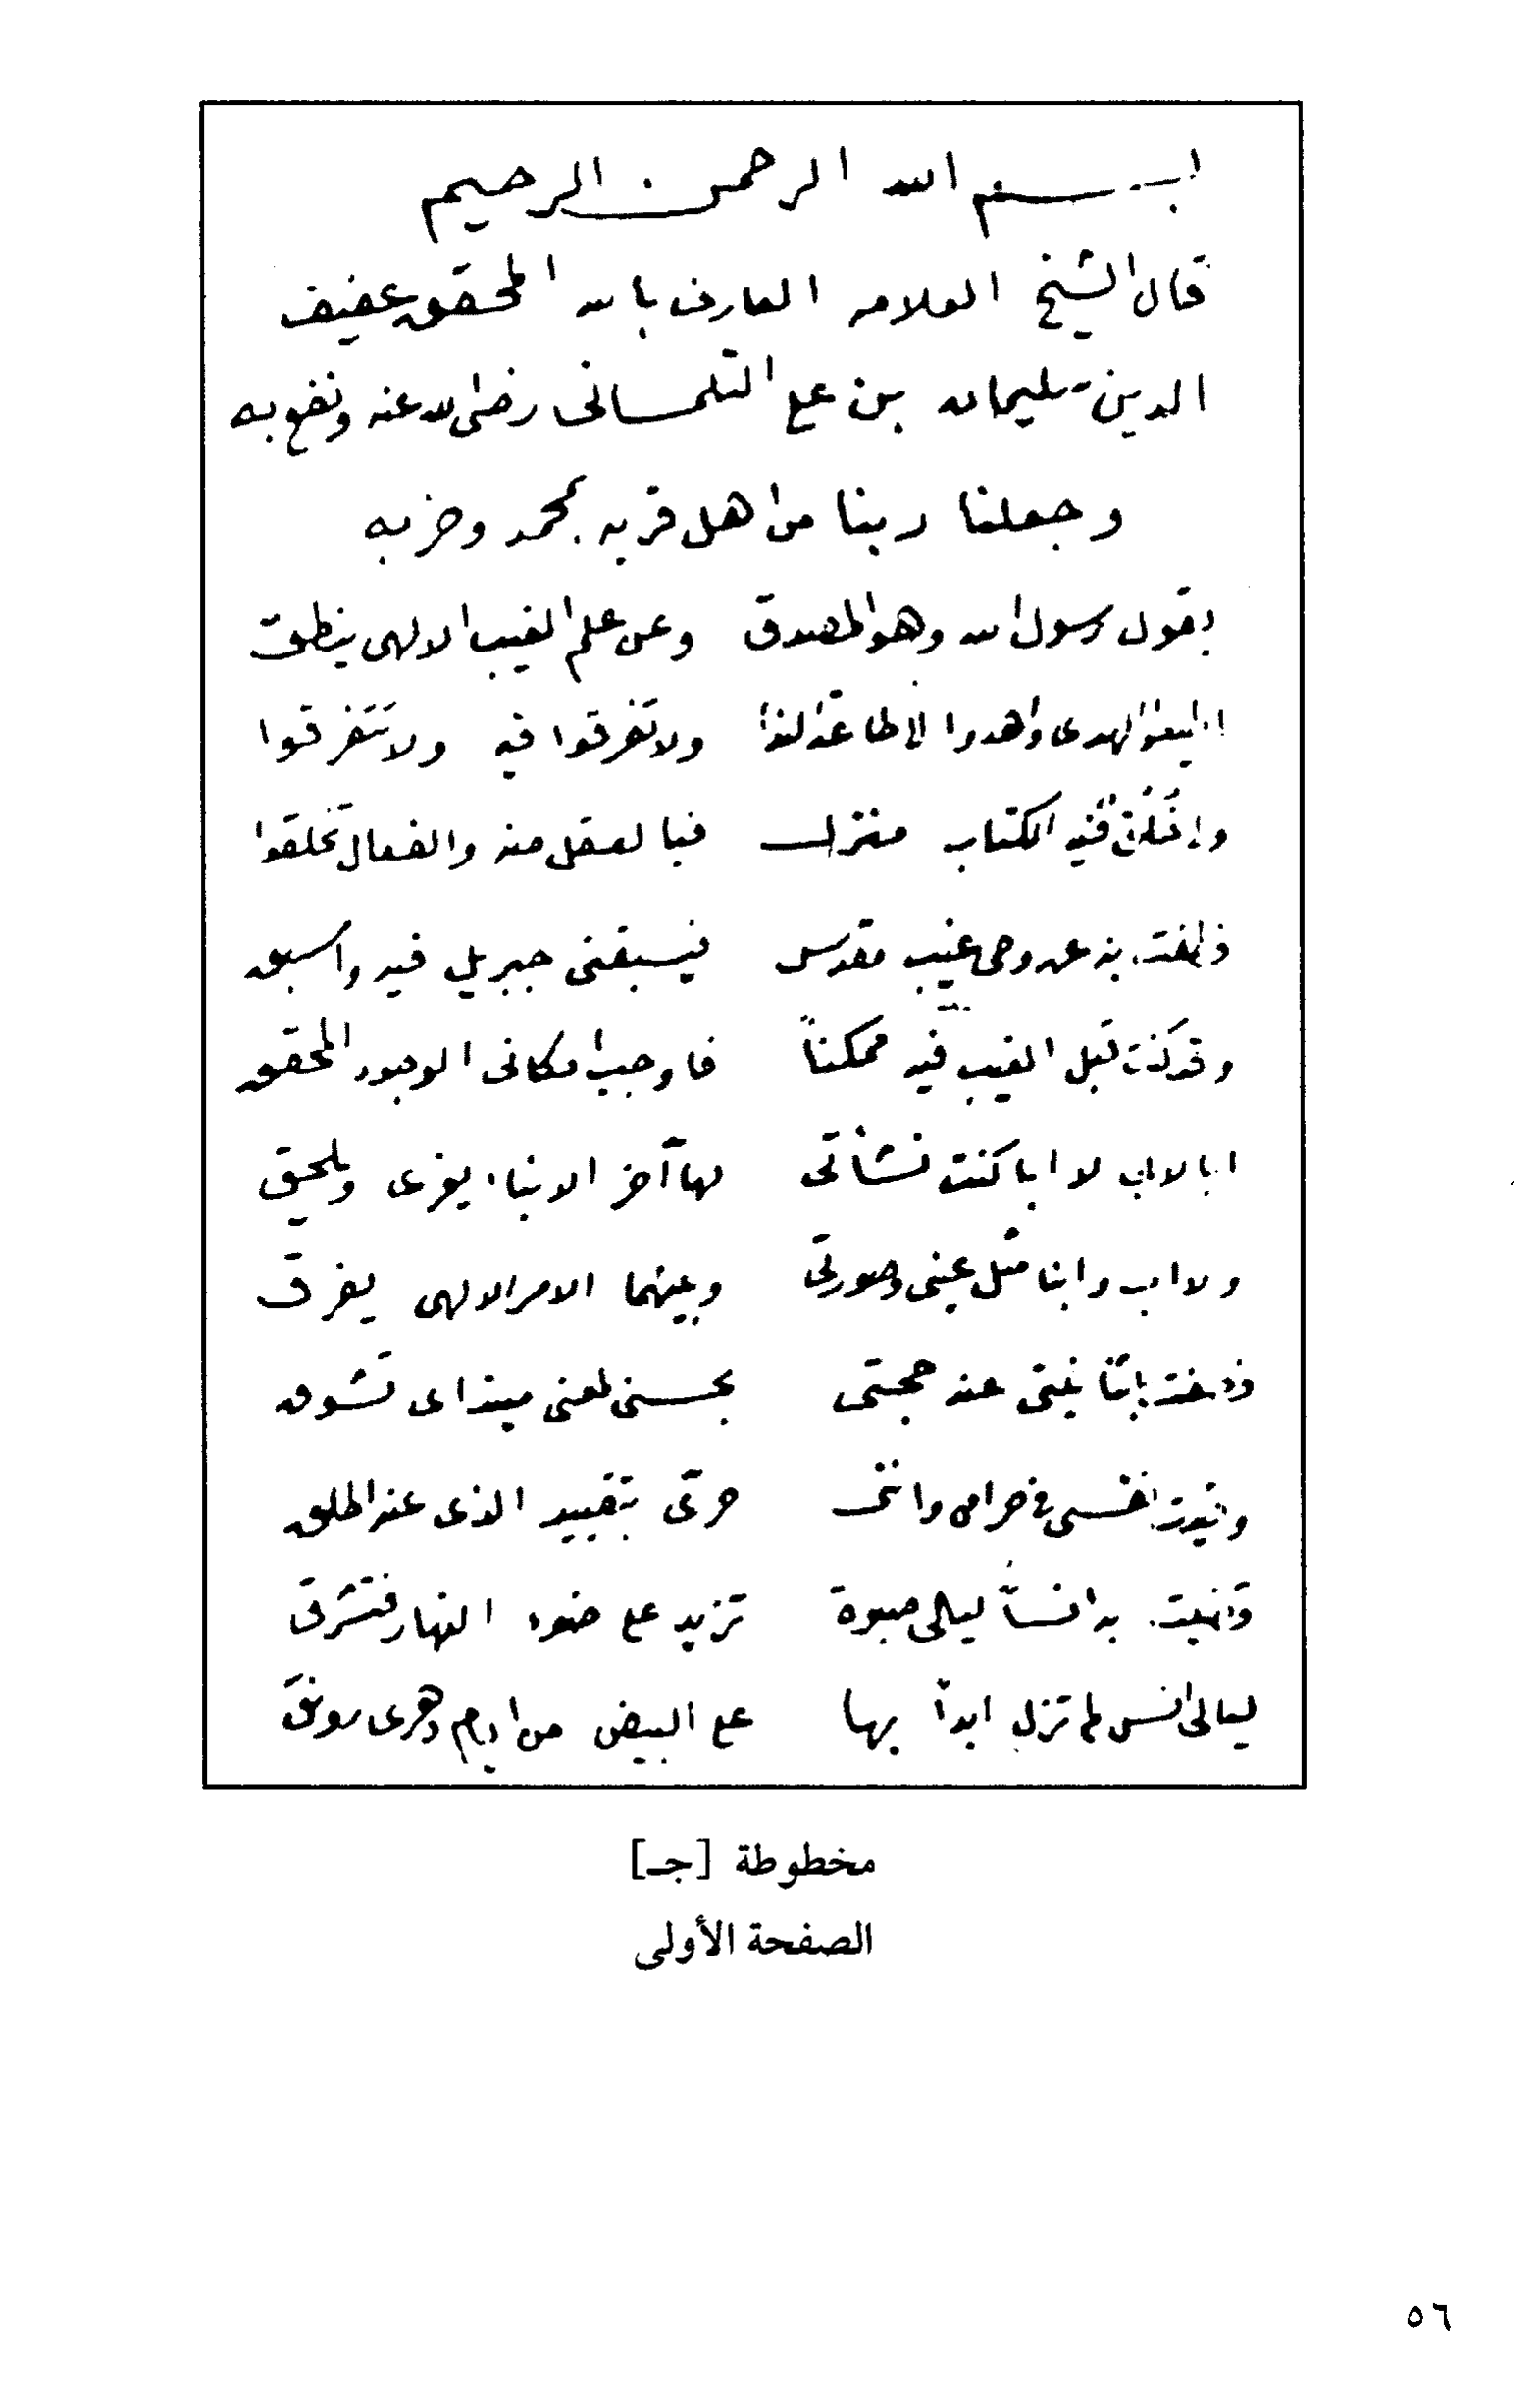 بسم الله الرحمن الرحيم
قال الشيخ العلامه العارف بالله المحقق عفيف
الدين سليمان بن علي التلمساني رضي الله عنه ونفع به
وجعلنا ربنا من اهل قربه بمحمد وحزبه
يقول رسول الله وهو المصدق وعن علم الغيب الالهى ينطق
الهدى واهدوا الى طاعة ولا تفرقوا فيه ولا تتفرقوا
فيه الكتاب منزل فبالعقل منه والفعال تخلقوا
به عن وحى غيب مقدس فيسبقنى جبريل فيه واسبق
وقد كنت قبل الغيب فيه ممكناً فاوجب امكانى الوجود المحقق
ابا لابي لا ابا كنت نشأتى لها آخر الابناء يعزى ويلحق
ولا اب وابنا مثل عينى وصورتى وبينهما الامر الالهى يفرق
عند حجتى بحسنى لمعنى مبتداى تشوق
فى حرامى واننى حرىّ بتقييد الذى عند اطلق
به انسا ليالى صبوة تزيد على ضوء النهار فتشرق
ليالى انس لم تزل ابداً بها على البيض من ايام دهرى رونق
مخطوطة [جـ]
الصفحة الأولى
٥٦